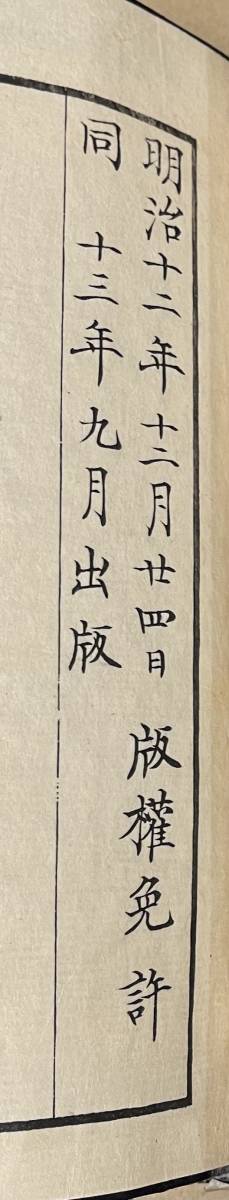 明治十二年十二月廿四日 版權免許
同 十三年九月出版